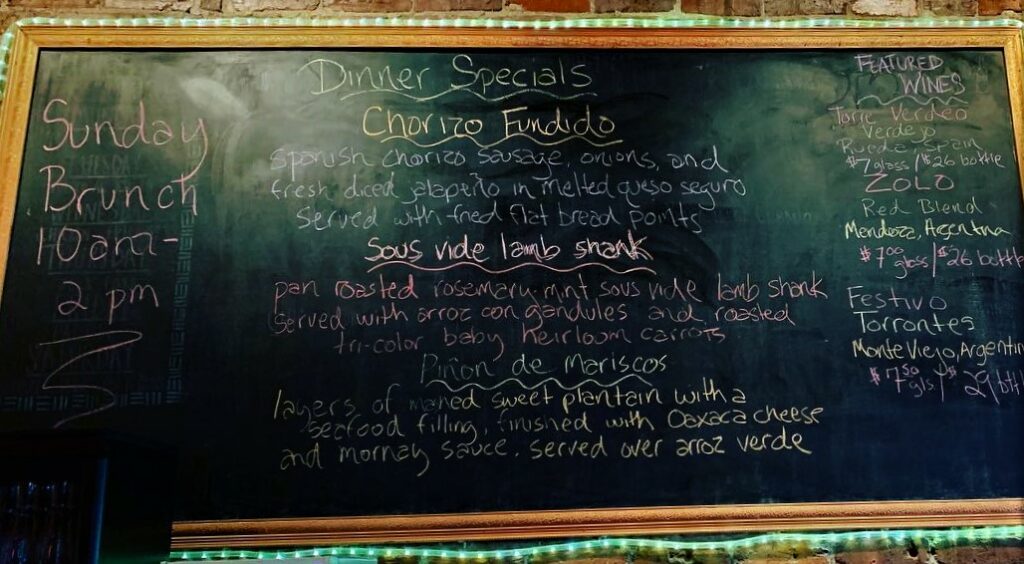 Sunday
Brunch
10am-
2 pm
Dinner Specials
Chorizo Fundido
spanish chorizo sausage, onions, and
fresh diced jalapeño in melted queso seguro
served with fried flat bread points
Sous vide lamb shank
pan roasted rosemary-mint sous vide lamb shank
served with arroz con gandules and roasted
tri-color baby heirloom carrots
Piñon de Mariscos
layers of sweet plantain with a
seafood filling, finished with Oaxaca cheese
and mornay sauce. served over arroz verde
FEATURED
WINES
Torre Verdeo
Verdejo
Rueda Spain
$7 glass / $26 bottle
ZOLO
Red Blend
Mendoza, Argentina
$7.00 glass / $26 bottle
Festivo
Torrontes
Monte Viejo, Argentin
$7.50 gls / $29 bttl